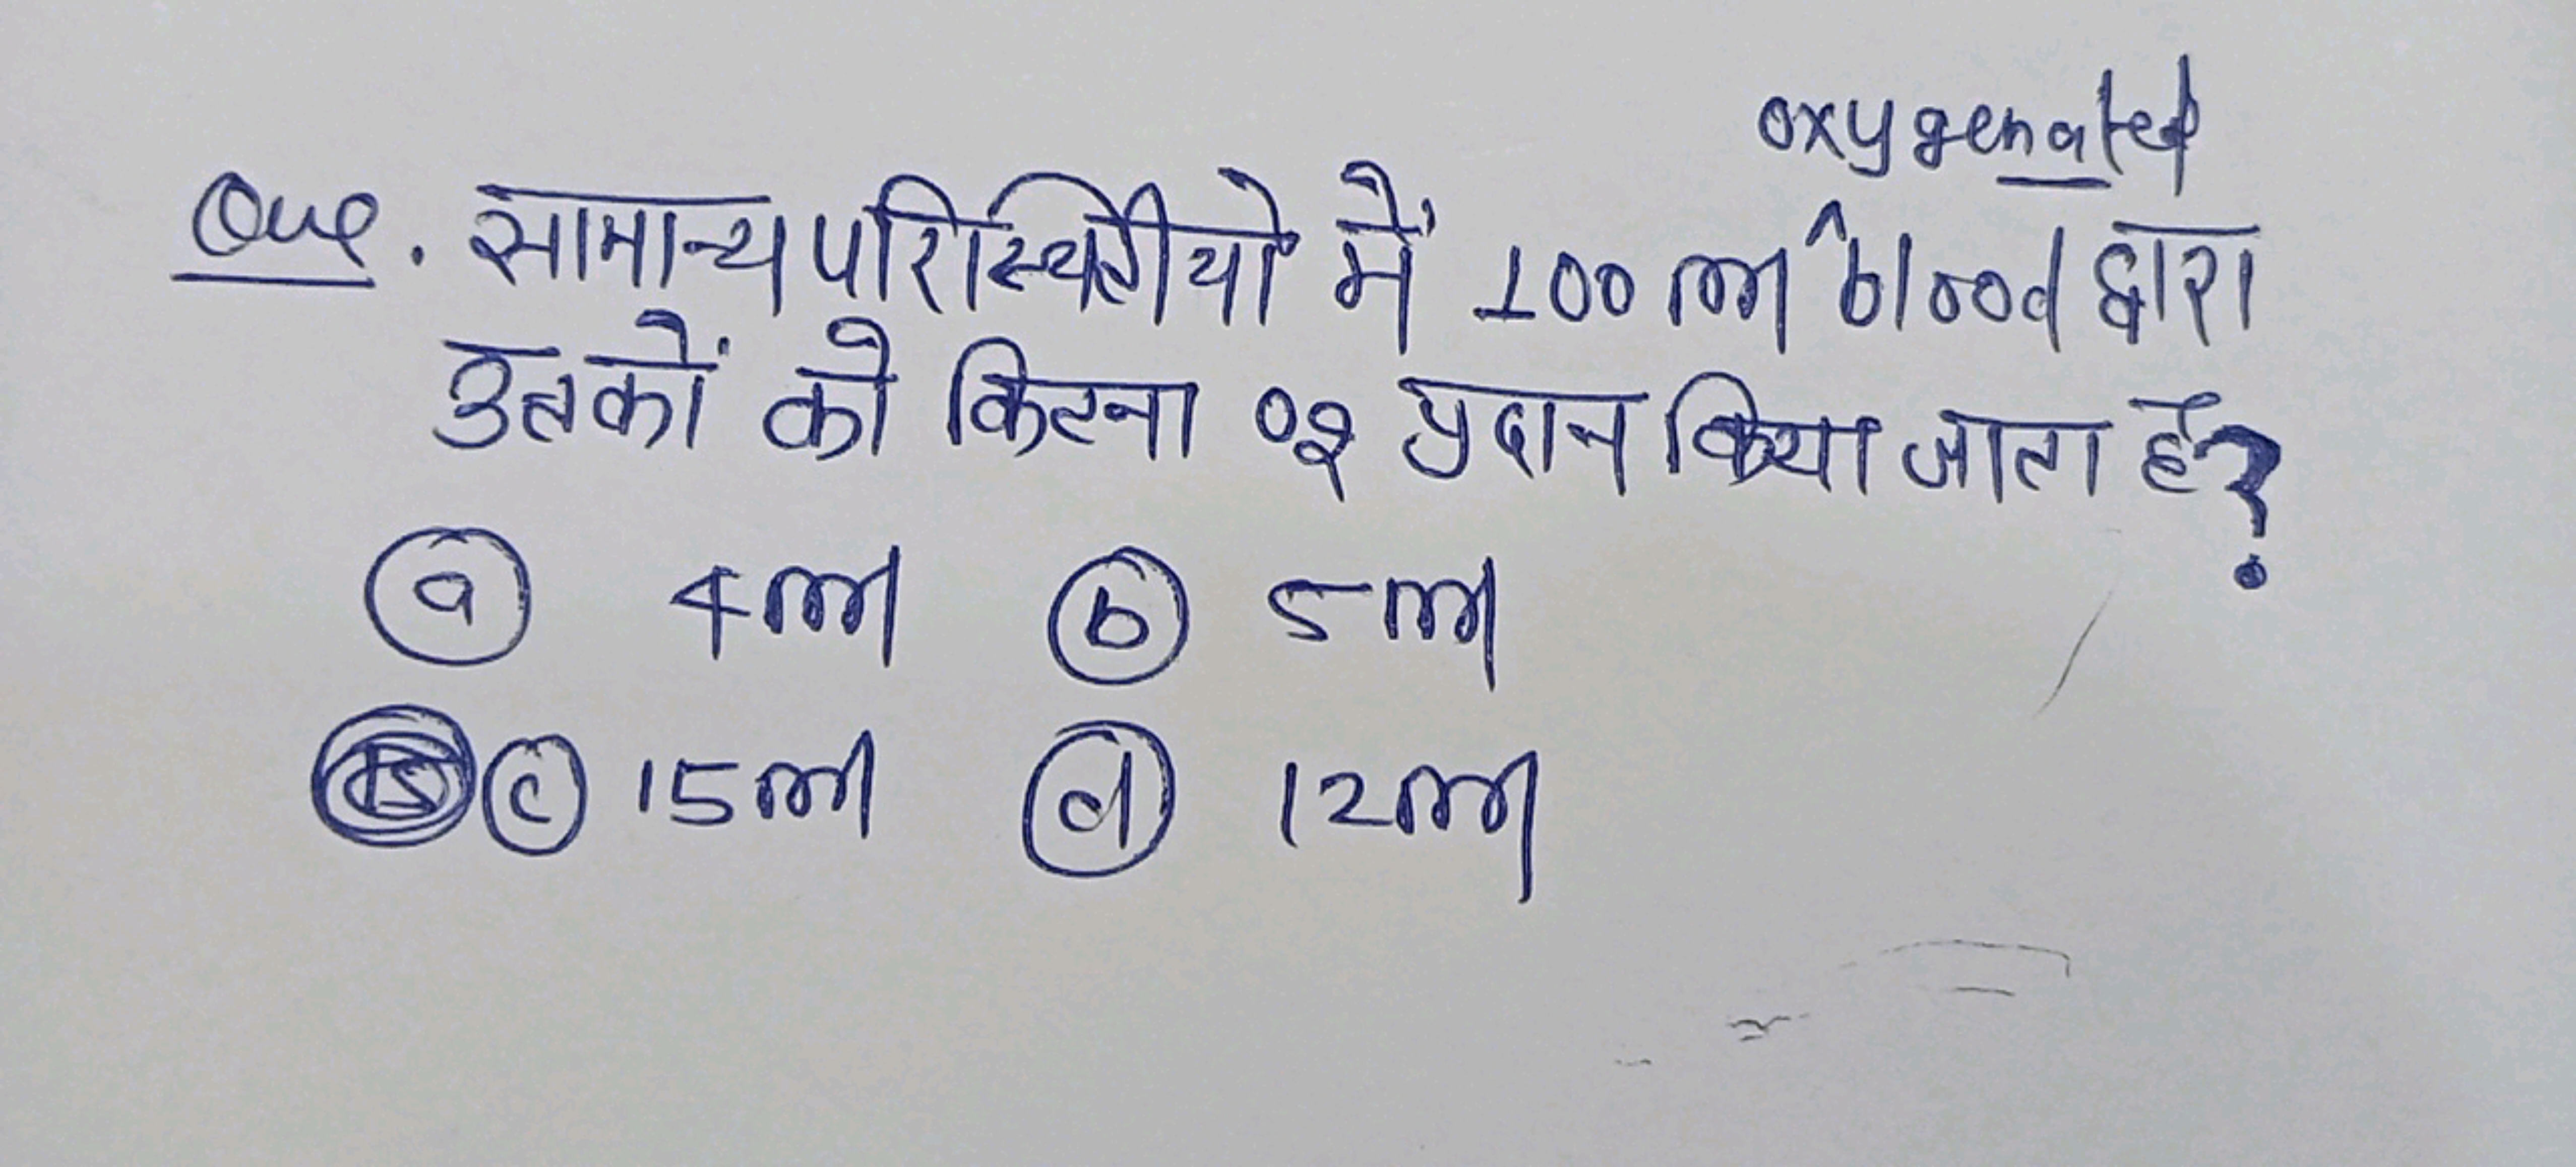 oxygenated
Que. सामान्य परिस्थितीयो में 100 ml ^ blood द्वारा
उतकों को कितना O२ प्रदान किया जाता है?
(a) 4ml (b) 5ml
(c) 15ml (d) 12ml